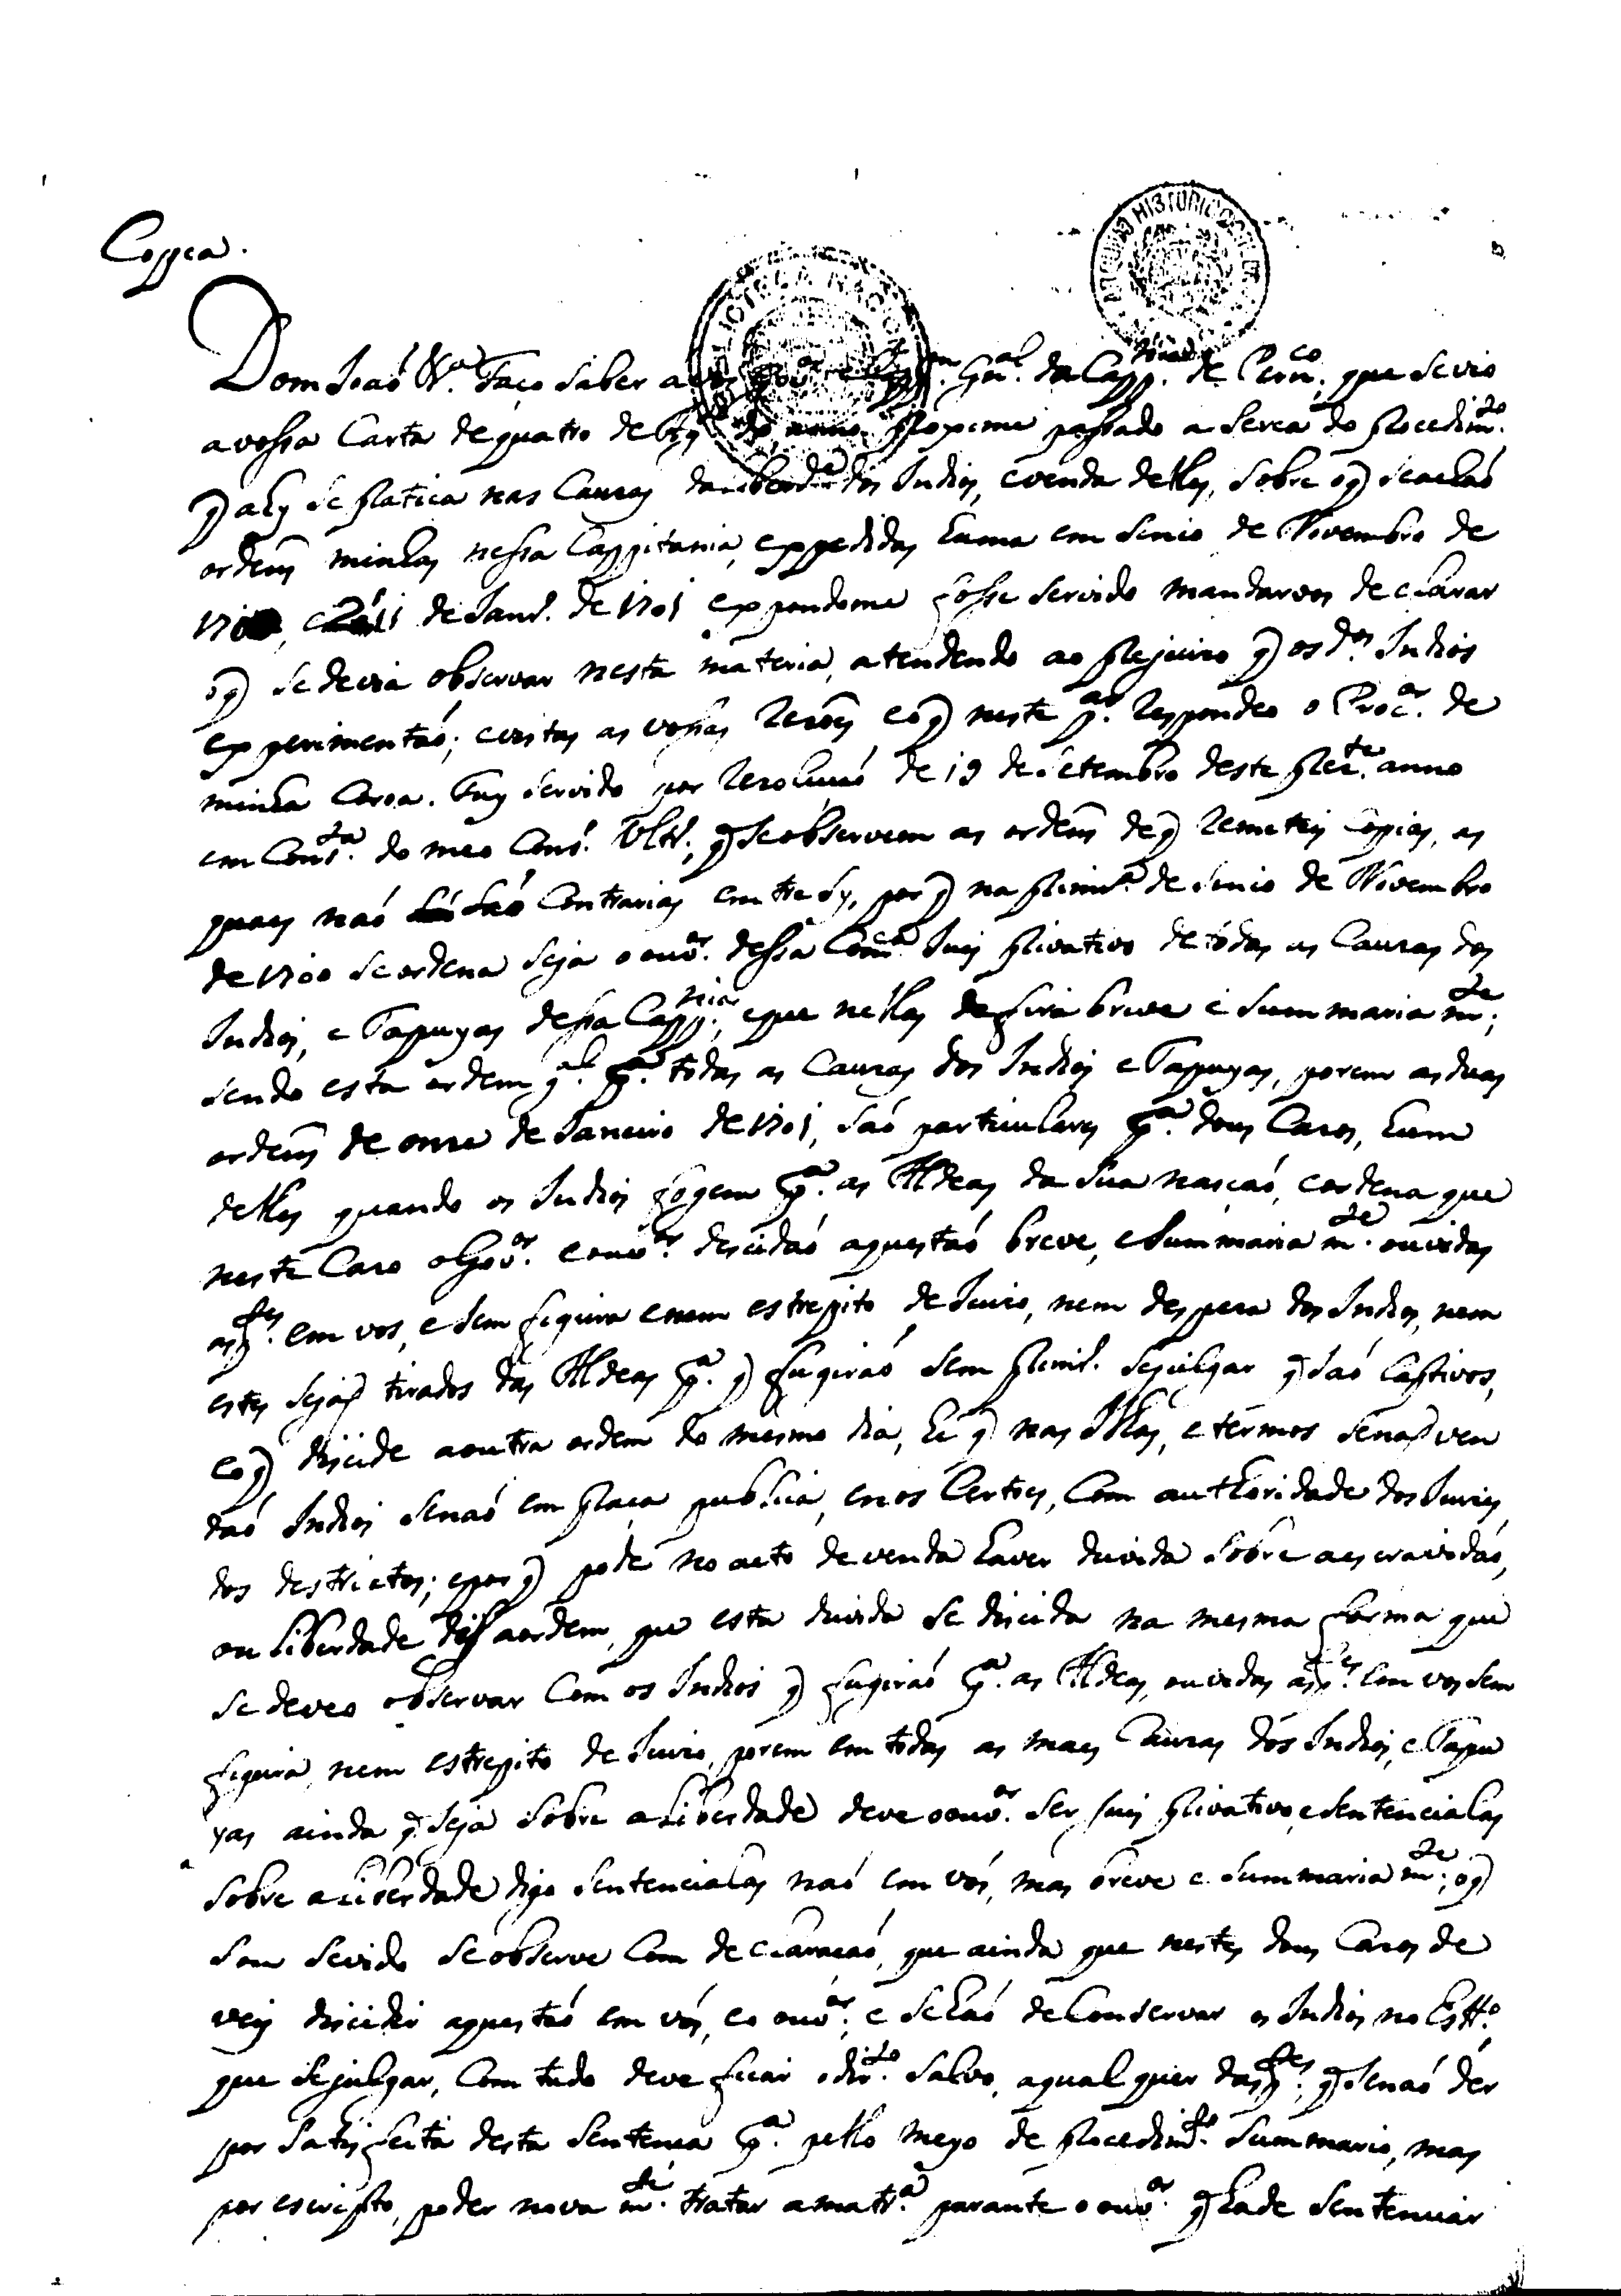 Coppea.
Dom Joaõ V.ª Faço saber a vos Gov.ºr e Capp.am Gn.al da Capp.nia de Pern.co, que se vio
a vossa Carta de quatro de do anno proximo passado a serca do procedim.to
q̃ ahy se pratica nas Cauzas da liberd.e dos Indios, e venda delles, sobre o q̃ se achaõ
ordens minhas nessa Cappitania, expedidas huma em sinco de Novembro de
170 , e 11 de Janr.º de 1701 expondome fosse servido mandarvos declarar
o q̃ se devia observar nesta materia, atendendo ao prejuizo q̃ os d.os Indios
experimentaõ; e vistas as vossas rezões e o q̃ neste p.ar respondeo o Proc.or de
minha Coroa. Fuy servido por rezoluçaõ de 19 de Setembro deste prez.te anno
em Cons.ta do meo Cons.º Ultr.º, q̃ se observem as ordens de q̃ remeteis copias, as
quaes naõ saõ Contrarias entre sy, por q̃ na primr.ª de sinco de Novembro
de 1700 se ordena seja o ouv.or dessa Com.ca Juis privativo de todas as Cauzas dos
Indios, e Tapuyas dessa Capp.nia, e que nellas defira breve e summariam.te;
sendo esta ordem g.al p.ª todas as Cauzas dos Indios e Tapuyas, porem as duas
ordens de onze de Janeiro de 1701, saõ particulares p.ª dous Cazos, hum
delles quando os Indios fogem p.ª as Aldeas da sua nasçaõ, e ordena que
neste Cazo o Gov.or e ouv.or descidaõ a questaõ breve, e summariam.te ouvidas
as p.tes em vos, e sem figura e nem estrepito de Juizo, nem despeza dos Indios, nem
estes sejaõ tirados das Aldeas p.ª q̃ fugiraõ sem primr.º se julgar q̃ saõ Captivos,
e o q̃ descide a outra ordem do mesmo dia, he q̃ nas Villas, e termos se naõ ven
daõ Indios senaõ em praça publica, e nos Certoes, Com authoridade dos Juizes
dos destrictos; e por q̃ pode no acto de venda haver duvida sobre a escravidaõ,
ou liberdade dis a ordem, que esta duvida se descida na mesma forma que
se deveo observar Com os Indios q̃ fugiraõ p.ª as Aldeas, ouvidas as p.tes em vos sem
figura, nem estrepito de Juizo, porem em todas as mais Cauzas dos Indios, e Tapu
yas ainda q̃ seja sobre a liberdade deve o ouv.or ser Juis privativo, e sentencialas
sobre a liberdade digo sentencialas naõ em vós, mas breve e summariam.te; o q̃
sou sevido se observe Com declaraçaõ, que ainda que nestes dous Cazos de
veis descidir a questaõ em vós, e o ouv.or; e se haõ de Conservar os Indios no Est.º
que se julgar, Com tudo deve ficar o dir.to salvo, a qual quer das p.tes, q̃ se naõ der
por satisfeita desta sentença p.ª pello meyo de procedim.to summario, mas
por escripto, poder novam.te tratar a matr.ª parante o ouv.or q̃ hade sentenciar